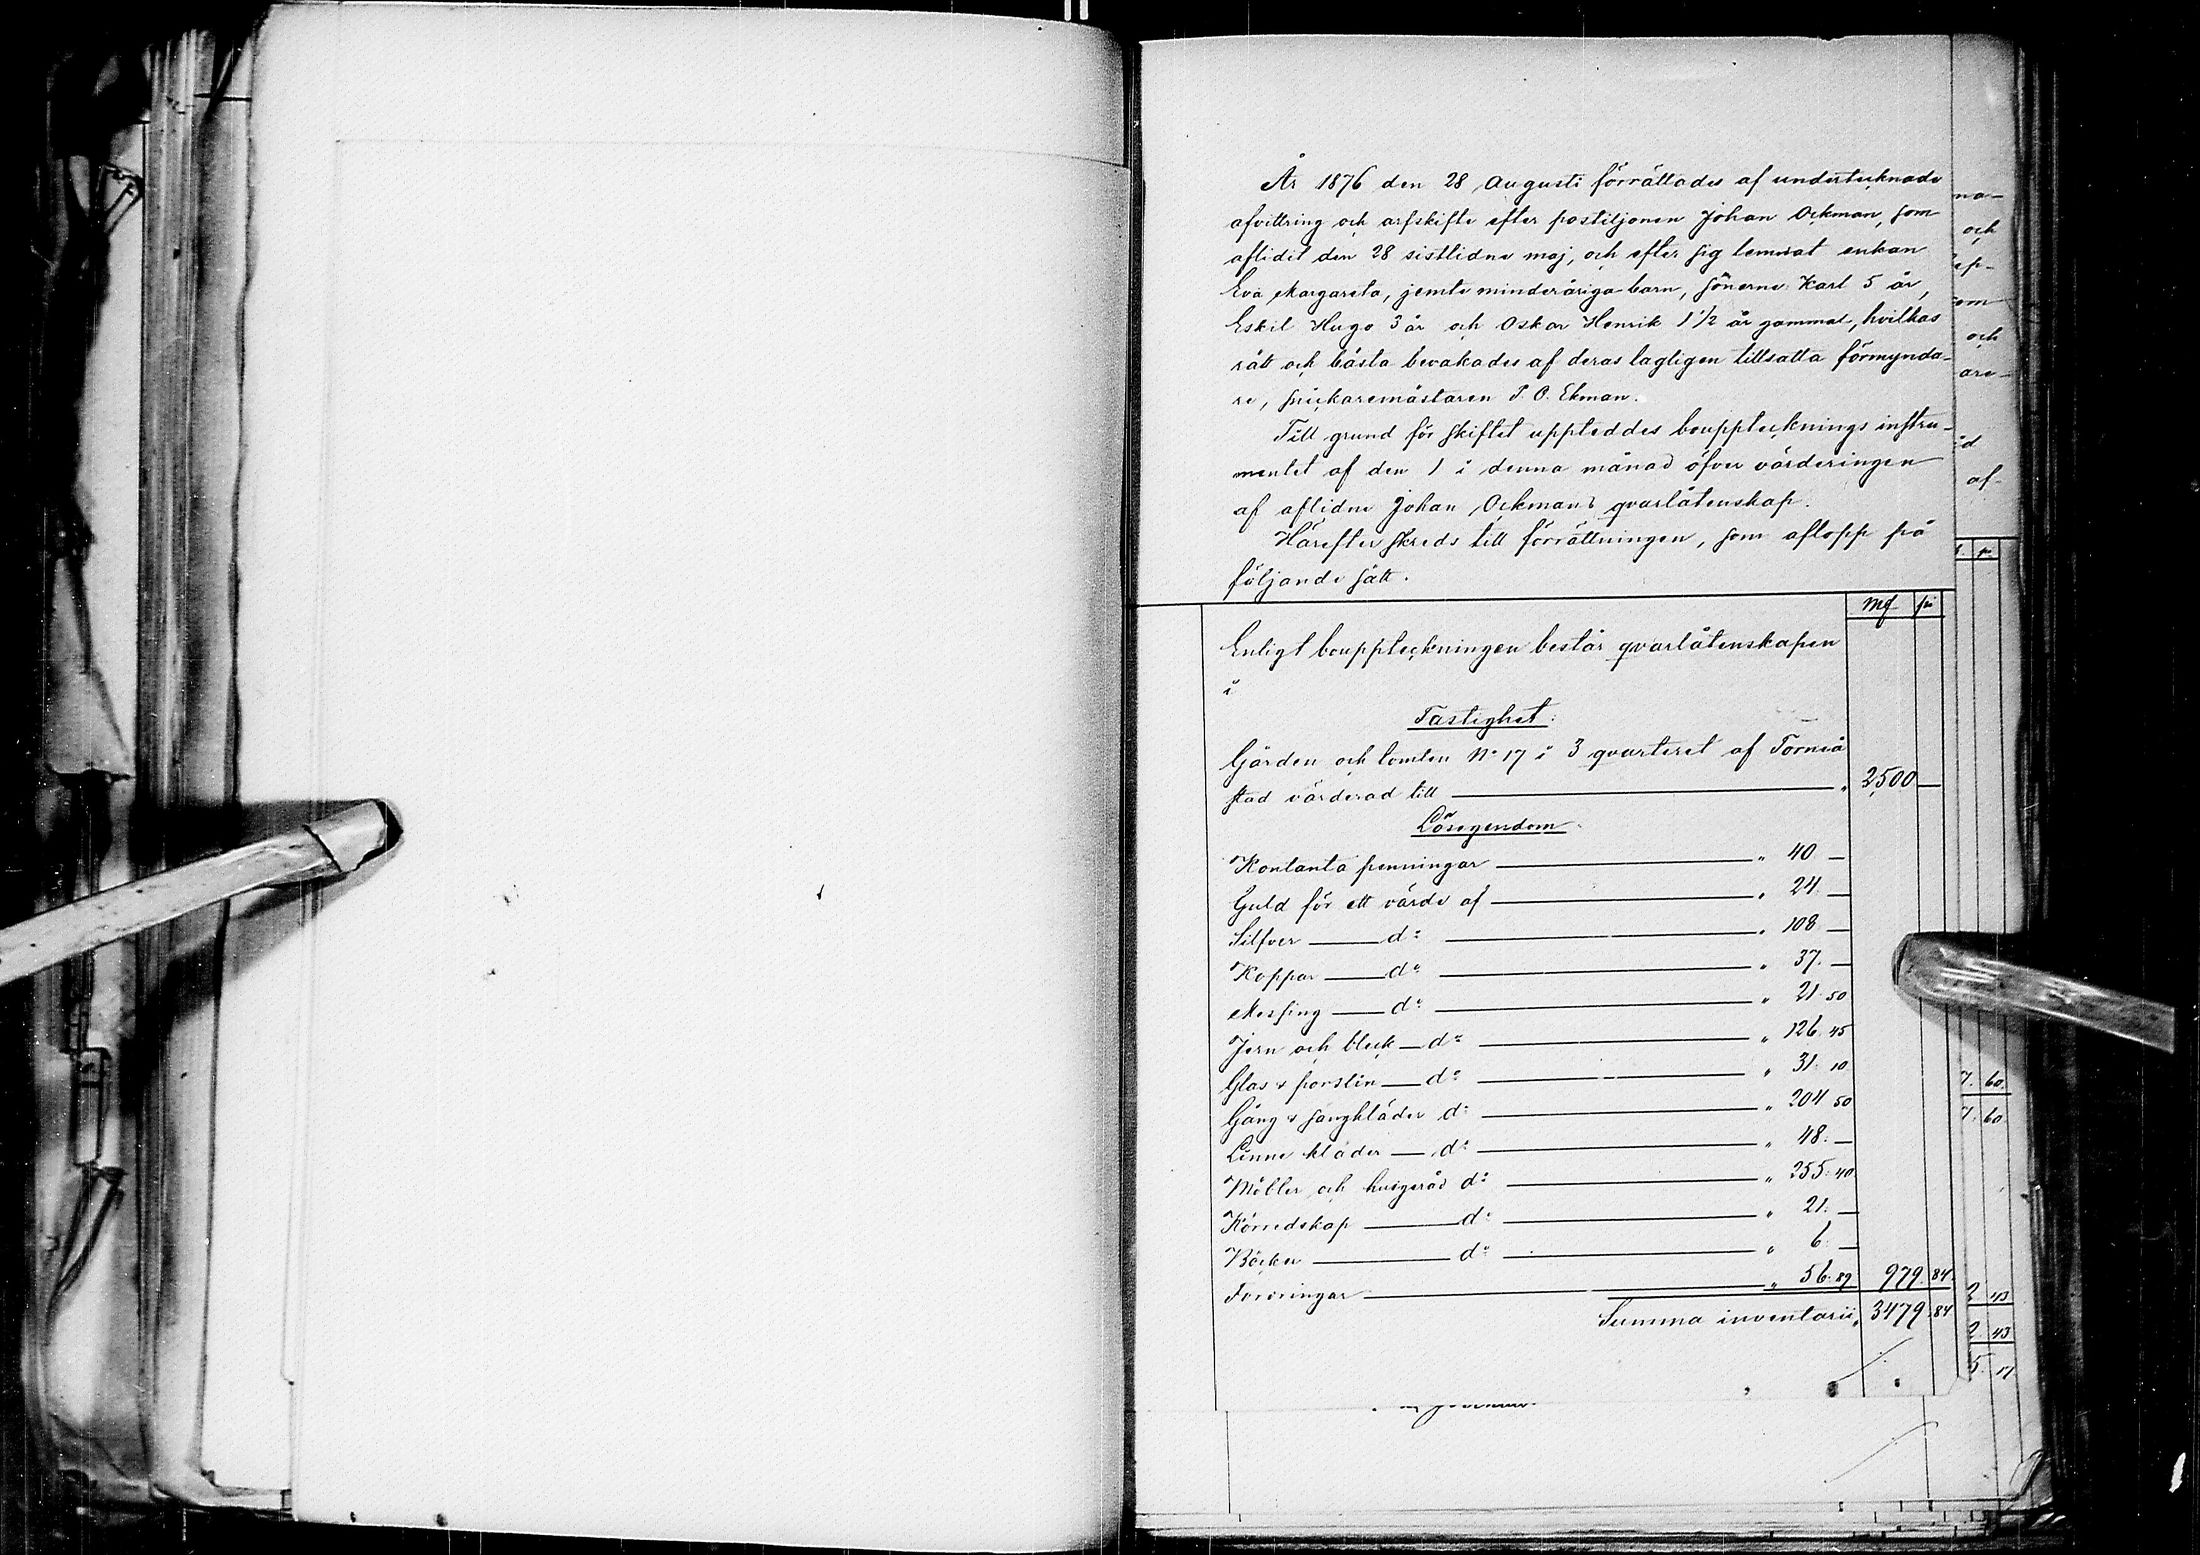 År 1876 den 28 Augusti förrättades af undertecknade
afvittring och arfskifte efter postiljonen Johan Öckman, som
aflidit den 28 sistlidne maj, och efter sig lemnat enkan
Eva Margareta, jemte minderåriga barn, sönerne: Karl 5 år,
Eskil Hugo 3 år och Oskar Henrik 1 1/2 år gammal, hvilkas
rätt och bästa bevakades af deras lagligen tillsatta förmynda-
re, snickaremästaren P. O. Ekman.
Till grund för skiftet uppteddes bouppteckningsinstru-
mentet af den 1 i denna månad öfver värderingen
af aflidne Johan Öckmans qvarlåtenskap.
Härefter skreds till förrättningen, som aflopp på
följande sätt.
Mk pi
Enligt bouppteckningen består qvarlåtenskapen
i
Fastighet:
Gården och tomten No 17 i 3 qvarteret af Torneå
stad värderad till — " 2,500 —
Lösegendom:
Kontanta penningar — " 40 —
Guld för ett värde af — " 24. —
Silfver — do — " 108 —
Koppar — do — " 37. —
Messing — do — " 21. 50
Jern och bleck — do — " 126. 45
Glas & porslin — do — " 31. 10
Gång & sängkläder do — " 204 50
Linne kläder — do — " 48. —
Möbler och husgeråd do — " 255. 40
Körredskap — do — " 21. —
Böcker — do — " 6. —
Fordringar — " 56. 89 979. 84
Summa inventarii " 3479. 84
na-
och
om
och
are-
af-
7. 60.
7. 60.
2 43
2 43
5. 17